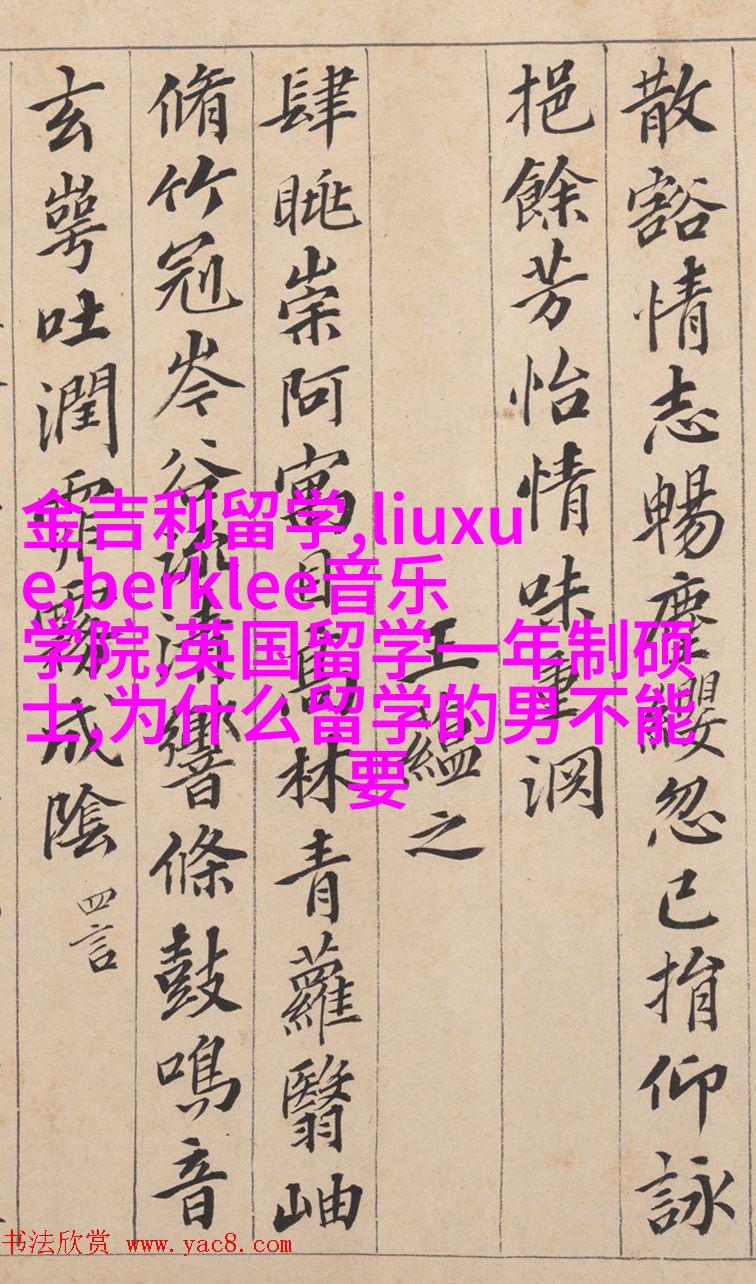 散豁情志暢塵纓忽已捐仰詠
挹餘芳怡情味重淵
王蘊之
肆眺崇阿寓目高林青蘿翳岫
脩竹冠岑谷流清響條鼓鳴音
玄崿吐潤霏霧成陰 四言
金吉利留学,liuxu
e,berklee音乐
学院,英国留学一年制硕
士,为什么留学的男不能
要
书法欣赏 www.yac8.com